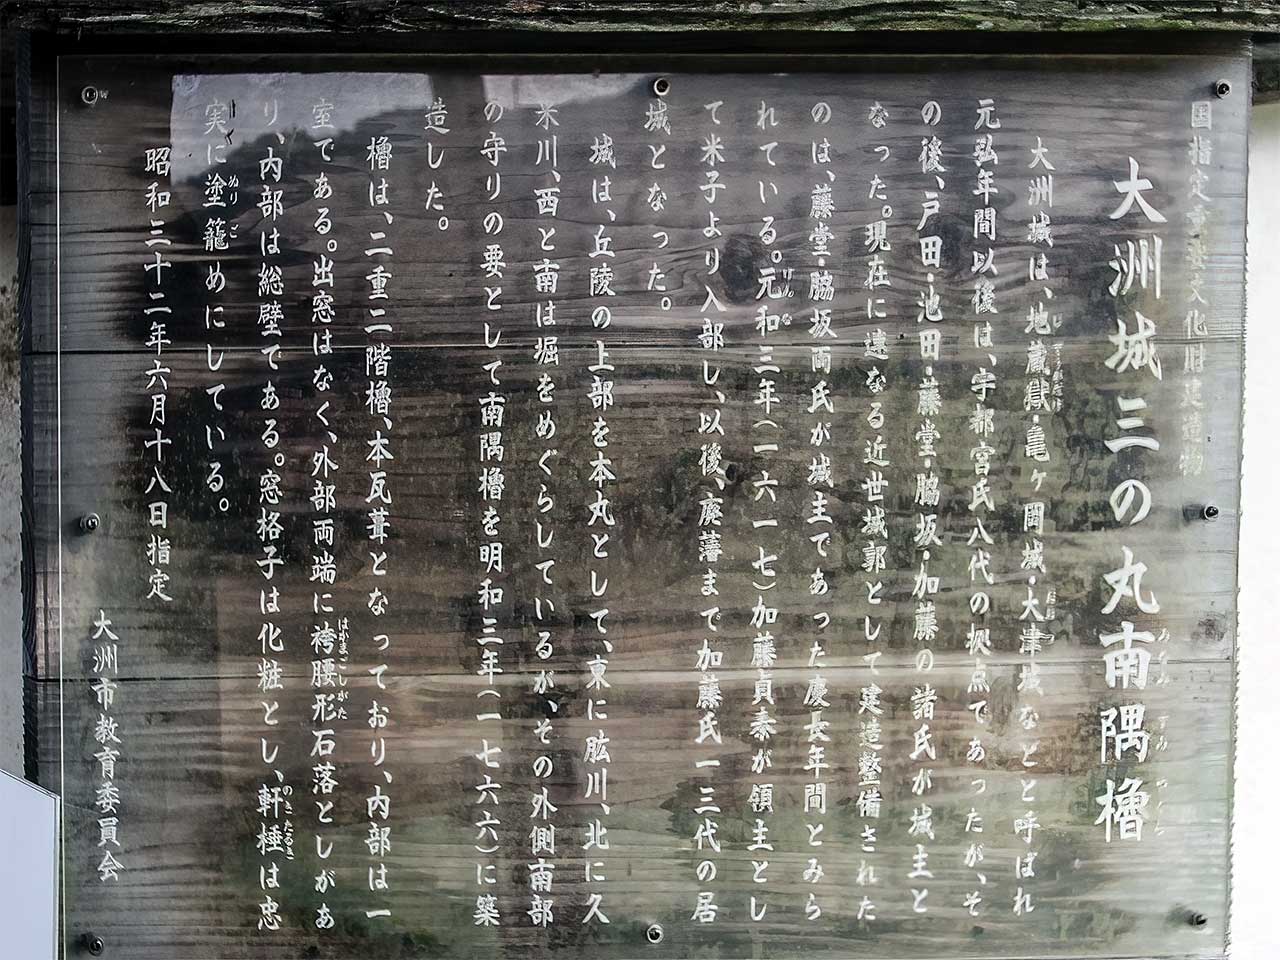 国指定重要文化財建造物
大洲城三の丸南隅櫓
みなみ すみ やぐら
大洲城は、地蔵嶽・亀ヶ岡城・大津城などと呼ばれ
元弘年間以後は、宇都宮氏八代の拠点であったが、そ
の後、戸田・池田・藤堂・脇坂・加藤の諸氏が城主と
なった。現在に遺なる近世城郭として建造整備された
のは、藤堂・脇坂両氏が城主であった慶長年間とみら
れている。元和三年(一六一七)加藤貞泰が領主とし
て米子より入部し、以後、廃藩まで加藤氏一三代の居
城となった。
城は、丘陵の上部を本丸として、東に肱川、北に久
米川、西と南は堀をめぐらしているが、その外側南部
の守りの要として南隅櫓を明和三年(一七六六)に築
造した。
櫓は、二重二階櫓、本瓦葺となっており、内部は一
室である。出窓はなく、外部両端に袴腰形石落としがあ
はかまごしがた
り、内部は総壁である。窓格子は化粧とし、軒棰は忠
のきたるき
実に塗籠めにしている。
ぬりご
昭和三十二年六月十八日指定
大洲市教育委員会